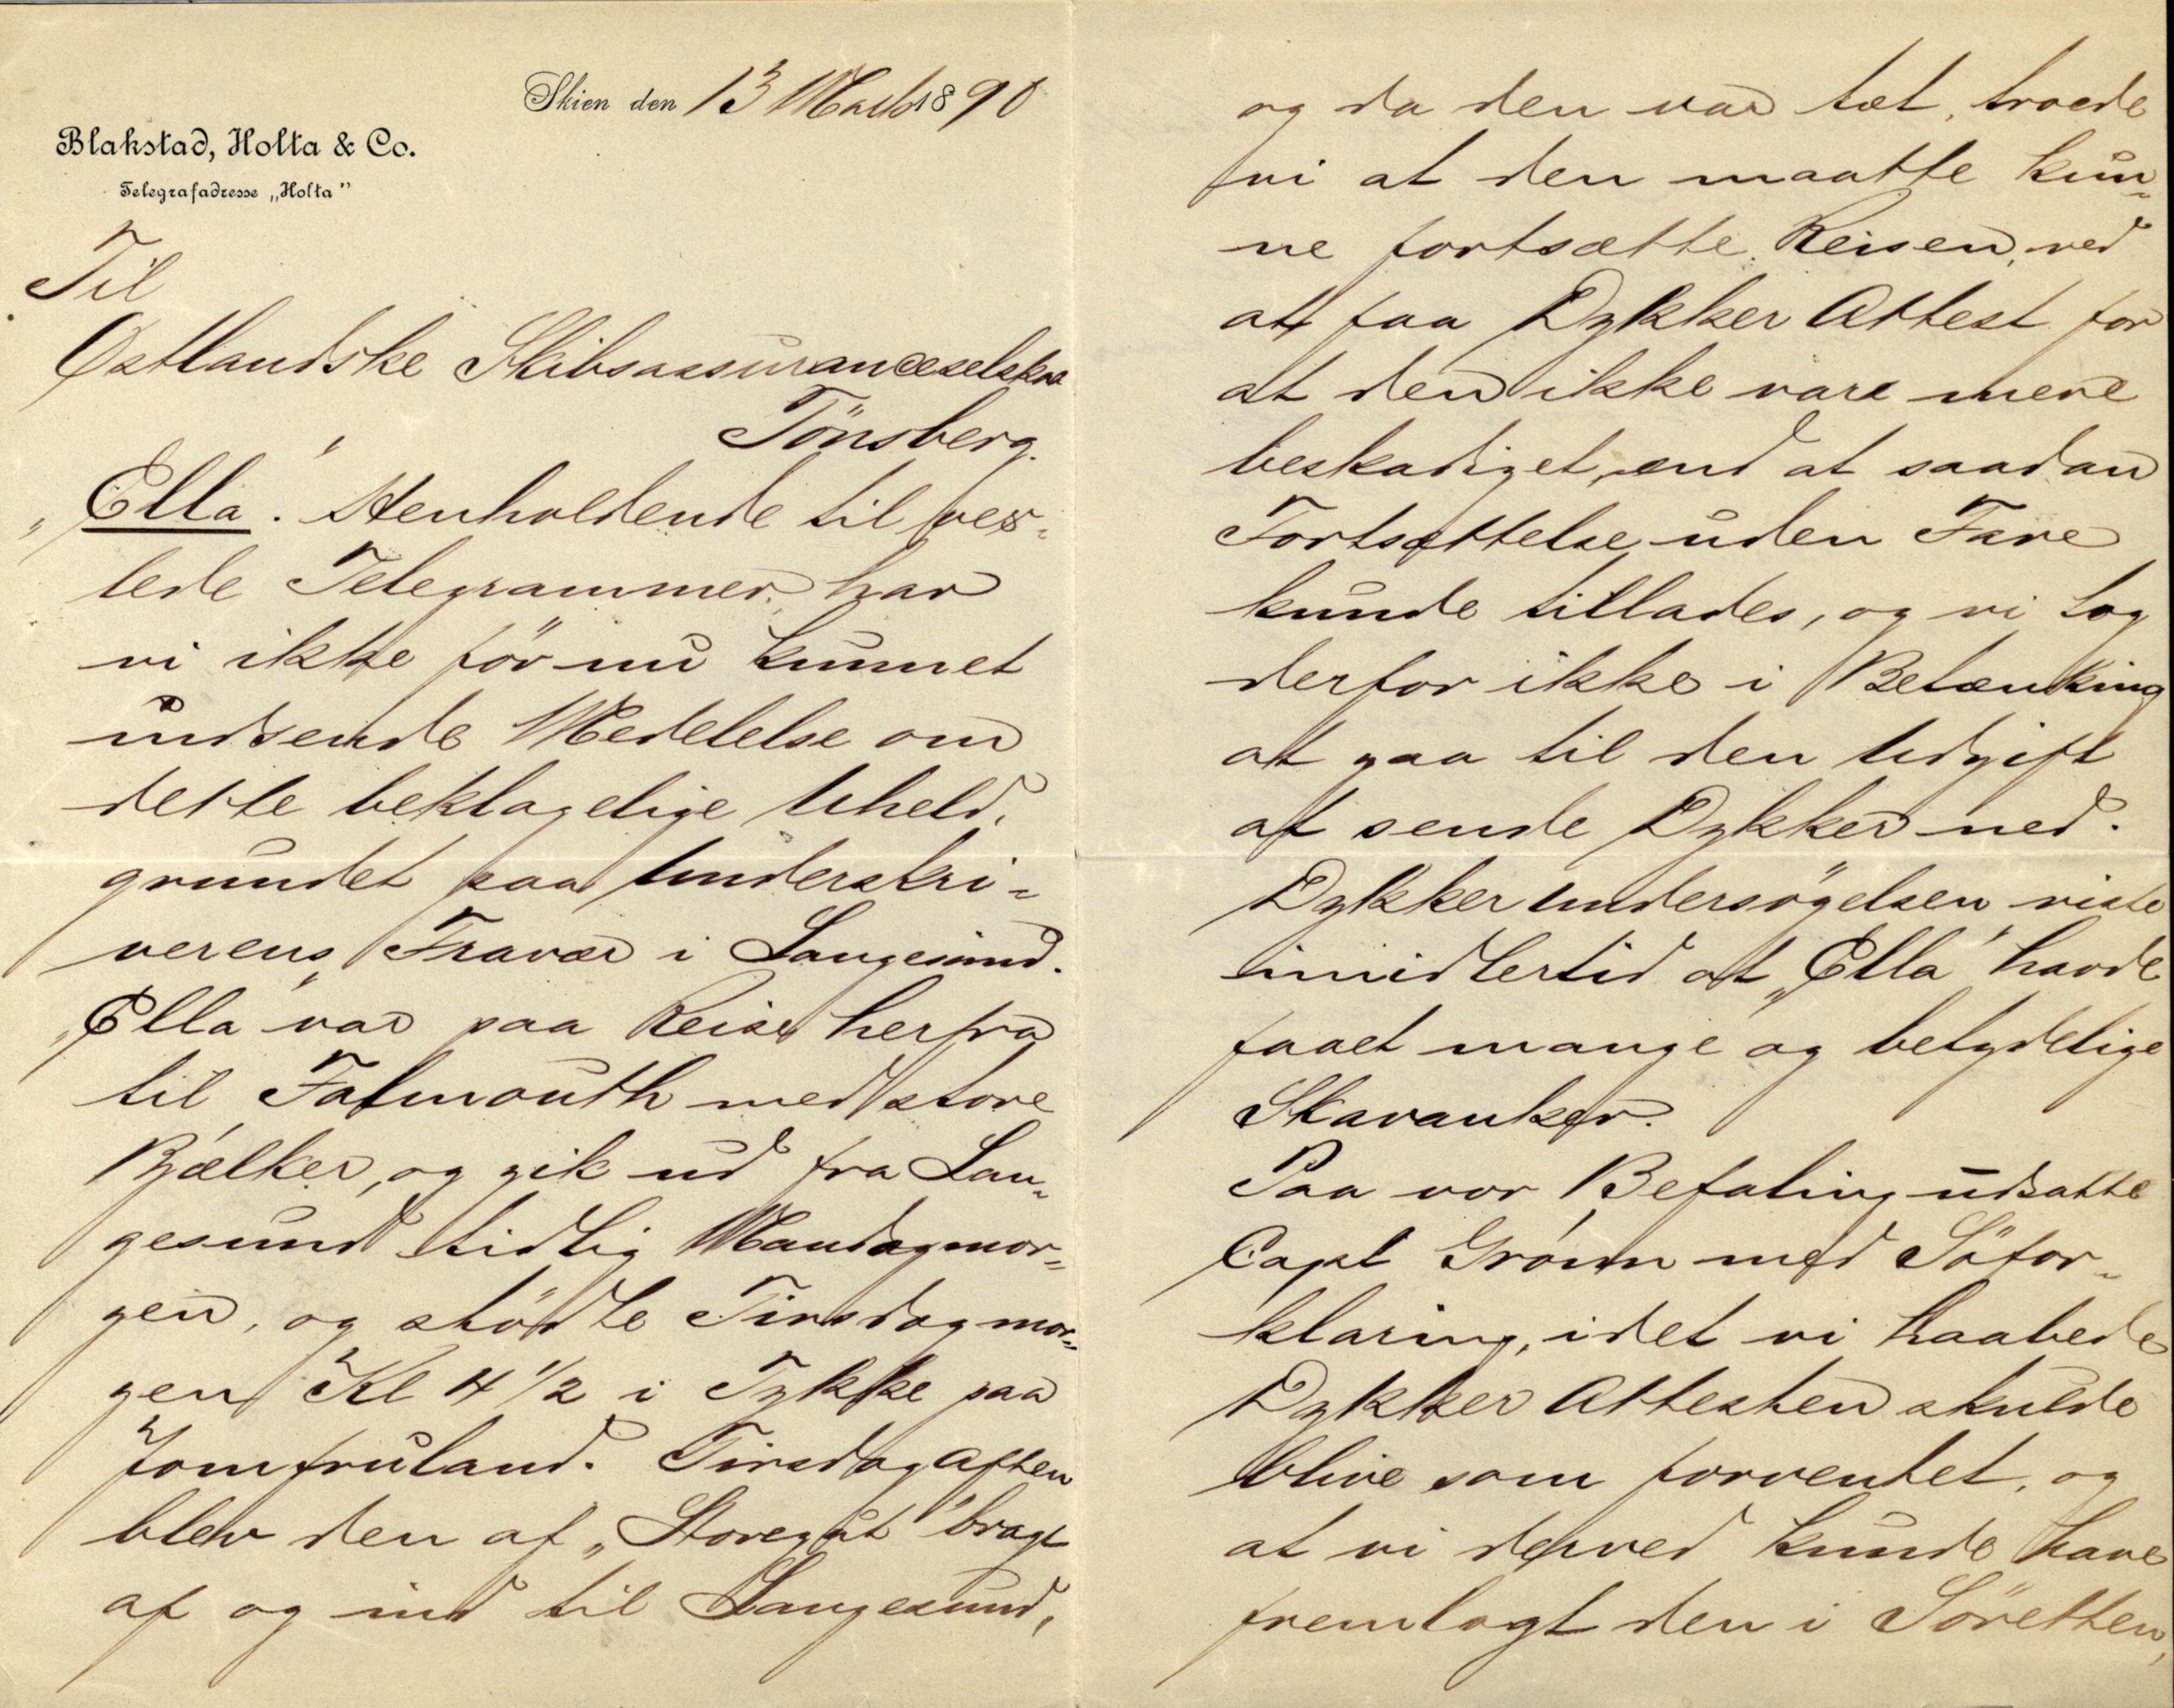 Skien den 13 Marts 1890
Blakstad, Holta & Co.
Telegrafadresse „Holta”
Til
Østlandske Skibsassuranceselskab
Tönsberg.
„Ella“. Henholdende til vex-
lede Telegrammer, har
vi ikke för nu kunnet
indsende Meddelelse om
dette beklagelige Uheld,
grundet paa Underskri-
verens Fravær i Langesund.
„Ella“ var paa Reise herfra
til Falmouth med store
Bjælker, og gik ud fra Lan-
gesund tidlig Mandagmor-
gen, og stödte Tirsdagmor-
gen Kl 4 1/2 i Tykke paa
Jomfruland. Tirsdagaften
blev den af „Storegut“ bragt
af og ind til Langesund,
og da den var tæt, troede
vi at den maatte kun-
ne fortsætte Reisen, ved
at faa Dykker Attest for
at den ikke vare mere
beskadiget, end at saadan
Fortsættelse uden Fare
kunde tillades, og vi tog
derfor ikke i Betænkning
at gaa til den Udgift
at sende Dykker ned.
Dykkerundersögelsen viste
imidlertid at „Ella“ havde
faaet mange og betydelige
Skavanker.
Paa vor Befaling udsatte
Capt Grönn med Söfor-
klaring, idet vi haabede
Dykker Attesten skulde
blive som forventet, og
at vi derved kunde have
fremlagt den i Söretten,